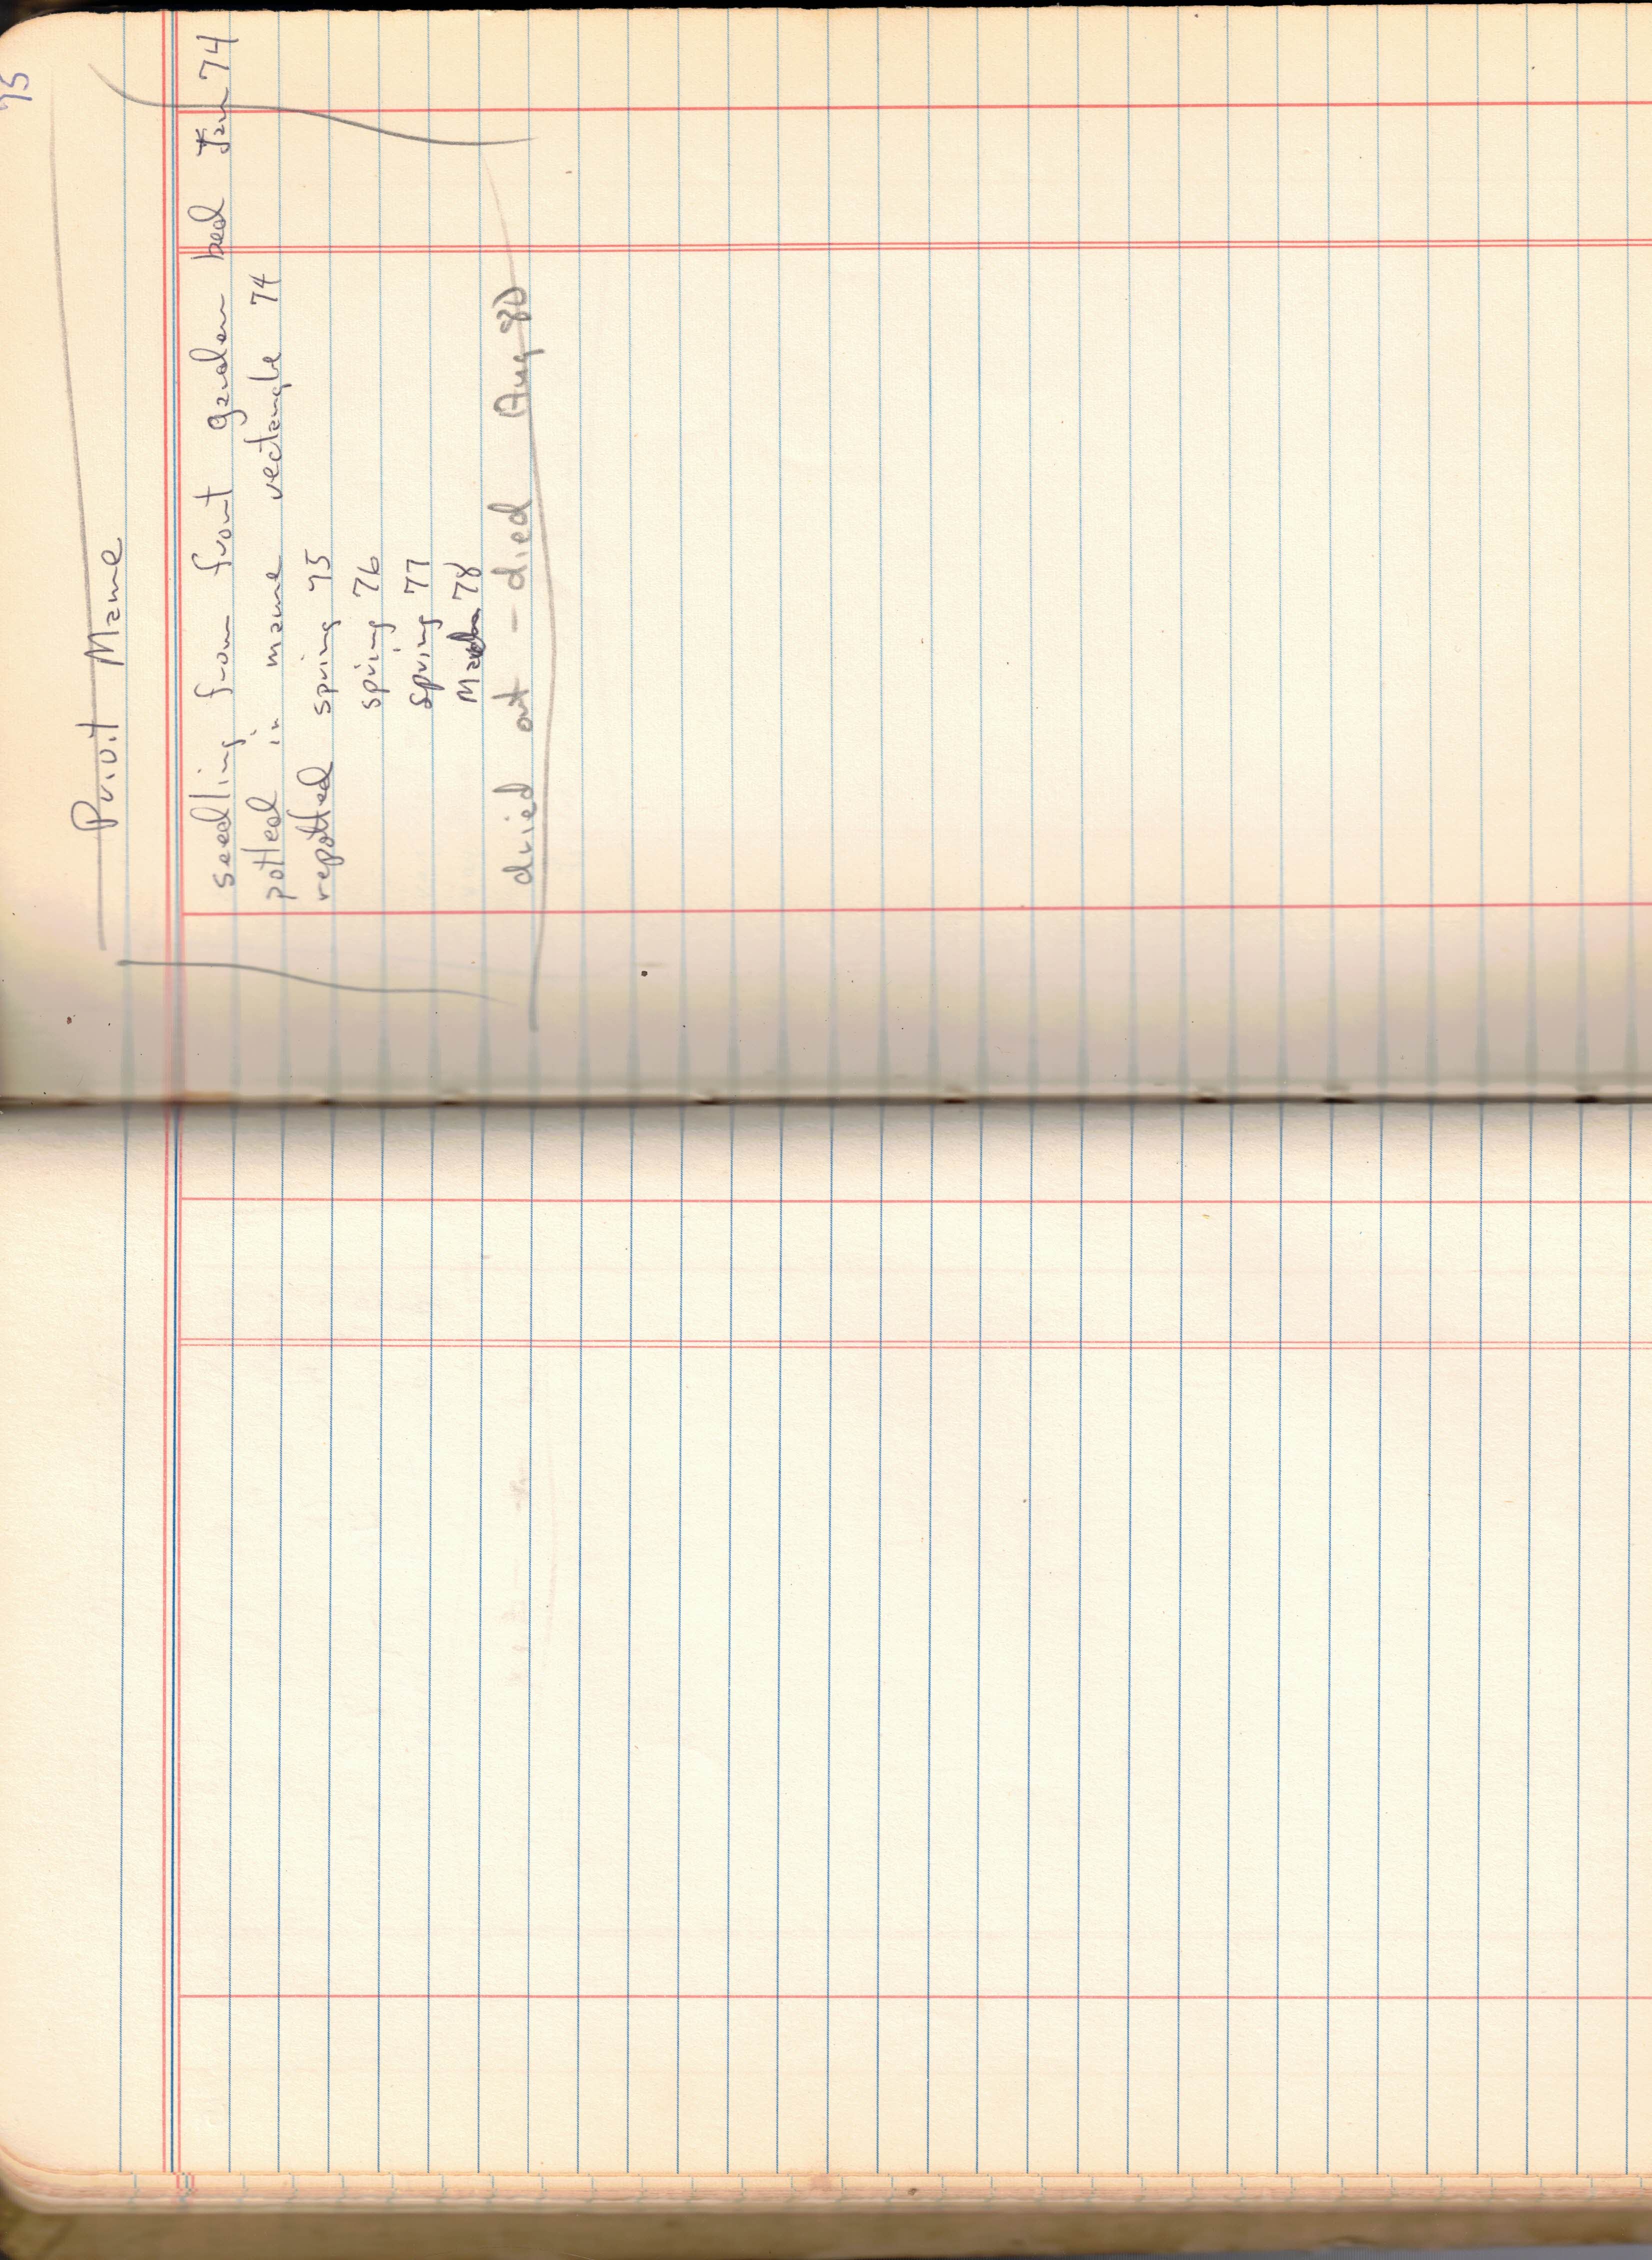 75
Privit Mame
seedling from front garden bed Jan 74
potted in mame rectangle 74
repotted spring 75
spring 76
spring 77
March 78
dried out - died Aug 80